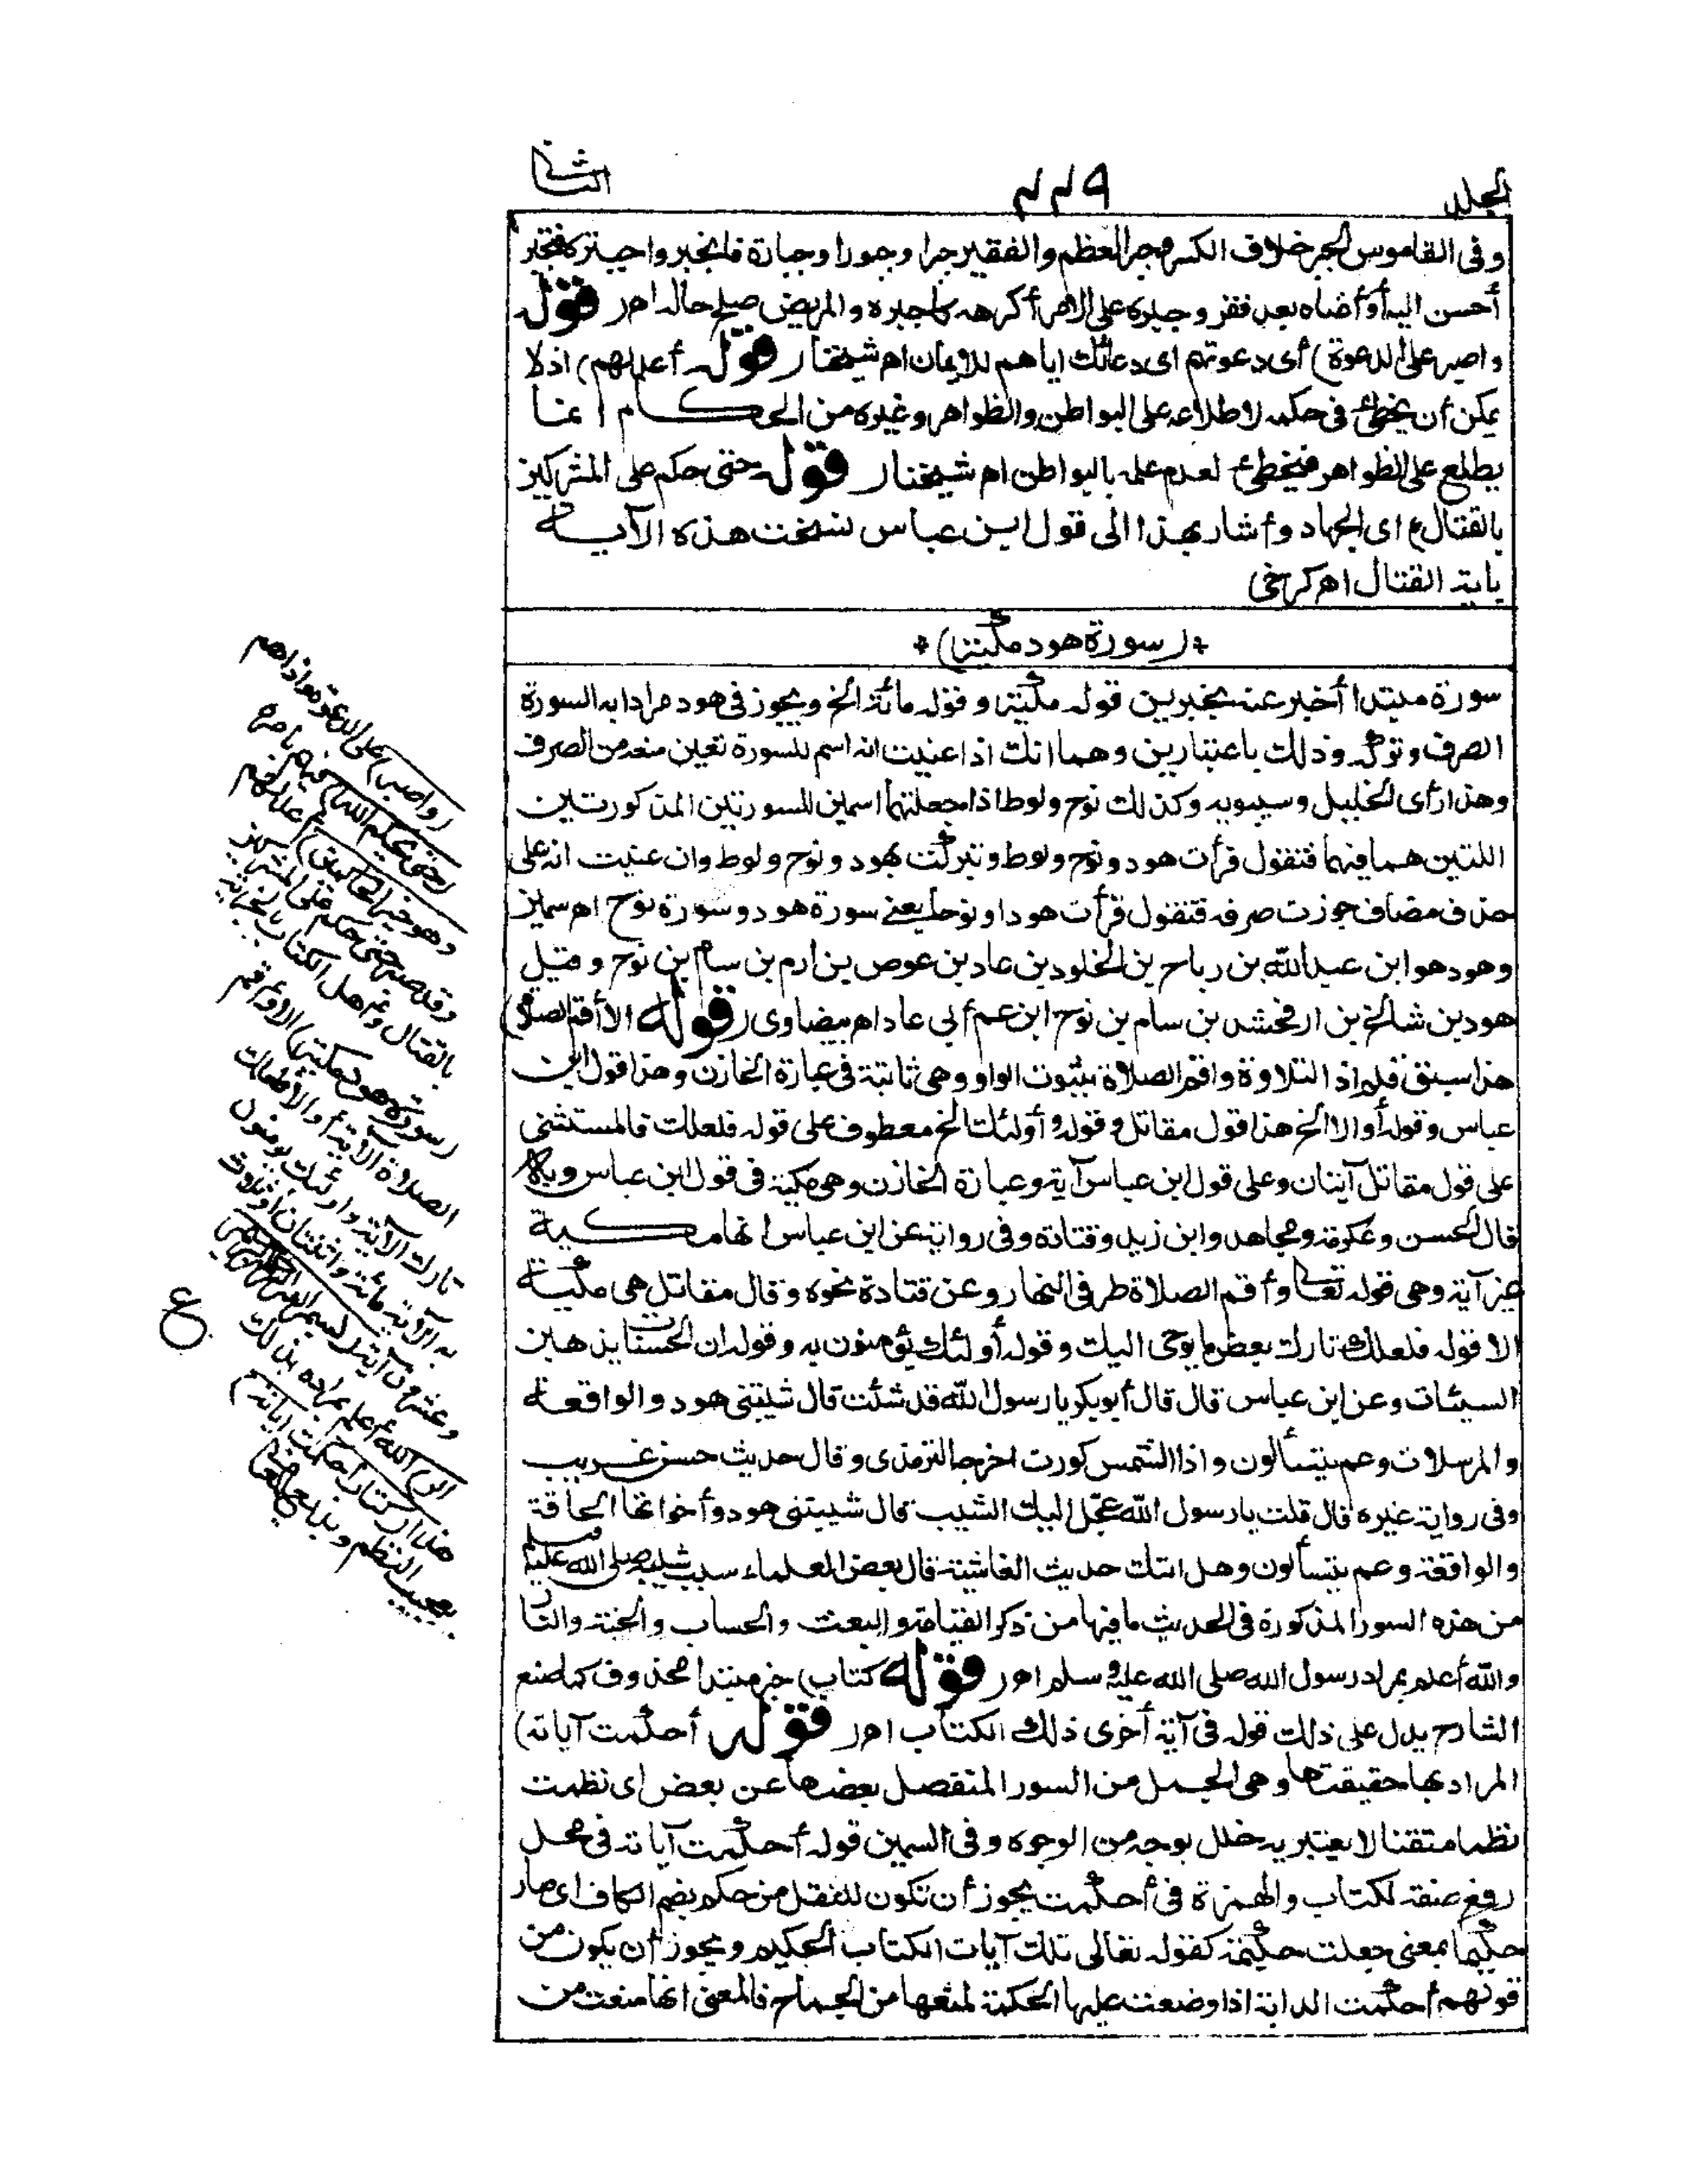 المجلد ٤٢٩ الثانى
وفى القاموس الجبر خلاف الكسر وجبر العظم والفقير جبرا وجبورا وجبارة فانجبر واجتبر فتجبر
أحسن اليه أو أغناه بعد فقر وجبره على الامر أكرهه كاجبره والمريض صلح حاله اهـ (قوله
واصبر على الدعوة) أى دعوتهم اى دعائك اياهم للايمان اهـ شيخنا (قوله أعدلهم) اذ لا
يمكن أن يخطئ فى حكمه لاطلاعه على البواطن والظواهر وغيره من الحكام انما
يطلع على الظواهر فيخطئ لعدم علمه بالبواطن اهـ شيخنا (قوله حتى حكم على المشركين
بالقتال) اى الجهاد وأشار بهذا الى قول ابن عباس نسخت هذه الآية
باية القتال اهـ كرخى
*(سورة هود مكية)*
سورة مبتدا أخبر عنه بخبرين قوله مكية وقوله مائة الخ ويجوز فى هود مرادا به السورة
الصرف وتركه وذلك باعتبارين وهما انك اذا عنيت انه اسم للسورة تعين منعه من الصرف
وهذا رأى الخليل وسيبويه وكذلك نوح ولوط اذا جعلتهما اسمين للسورتين المذكورتين
اللتين هما فيهما فتقول قرأت هود ونوح ولوط وتبركت بهود ونوح ولوط وان عنيت انه على
حذف مضاف جوزت صرفه فتقول قرأت هودا ونوحا يعنى سورة هود وسورة نوح اهـ سمين
وهود هو ابن عبد الله بن رباح بن الخلود بن عاد بن عوص بن ارم بن سام بن نوح وقيل
هود بن شالخ بن ارفخشد بن سام بن نوح ابن عم أبى عاد اهـ بيضاوى (قوله الا أقم الصلاة)
هذا سبق قلم اذ التلاوة واقم الصلاة بثبوت الواو وهى ثابتة فى عبارة الخازن وهذا قول ابن
عباس وقوله أو الا الخ هذا قول مقاتل وقوله وأولئك الخ معطوف على قوله فلعلك فالمستثنى
على قول مقاتل آيتان وعلى قول ابن عباس آية وعبارة الخازن وهى مكية فى قول ابن عباس وبه
قال الحسن وعكرمة ومجاهد وابن زيد وقتادة وفى رواية عن ابن عباس انها مكية
غير آية وهى قوله تعالى وأقم الصلاة طرفى النهار وعن قتادة نحوه وقال مقاتل هى مكية
الا قوله فلعلك تارك بعض ما يوحى اليك وقوله أولئك يؤمنون به وقوله ان الحسنات يذهبن
السيئات وعن ابن عباس قال قال أبو بكر يا رسول الله قد شئت قال شيبتنى هود والواقعة
والمرسلات وعم يتسألون واذا الشمس كورت اخرجه الترمذى وقال حديث حسن غريب
وفى رواية غيره قال قلت يا رسول الله عجل اليك الشيب قال شيبتنى هود وأخواتها الحاقة
والواقعة وعم يتسألون وهل اتتك حديث الغاشية قال بعض العلماء سبب شيبه صلى الله عليه وسلم
من هذه السور المذكورة فى الحديث ما فيها من ذكر القيامة والبعث والحساب والجنة والنار
والله أعلم بمراد رسول الله صلى الله عليه وسلم اهـ (قوله كتاب) خبر مبتدا محذوف كما صنع
الشارح يدل على ذلك قوله فى آية أخرى ذلك الكتاب اهـ (قوله أحكمت آياته)
المراد بها حقيقتها وهى الجمل من السور المنفصل بعضها عن بعض اى نظمت
نظما متقنا لا يعتبر به خلل بوجه من الوجوه وفى السمين قوله أحكمت آياته فى محل
رفع صفة لكتاب والهمزة فى أحكمت يجوز أن تكون للنقل من حكم بضم الكاف اى صار
حكيما بمعنى جعلت حكيمة كقوله تعالى تلك آيات الكتاب الحكيم ويجوز أن يكون من
قولهم أحكمت الدابة اذا وضعت عليها الحكمة لمنعها من الجماح فالمعنى انها منعت من
(واصبر) على الدعوة واذاهم
(حتى يحكم الله) فيهم بامره
(وهو خير الحاكمين) أعدلهم
وقد صبر حتى حكم على المشركين
بالقتال وغيرهل الكتاب بالجزية
(سورة هود مكية) الا وأقم
الصلاة الآية أو الا فلعلك
تارك الآية وأولئك يؤمنون
به الآية مائة واثنتان أو ثلاث
وعشرون آية (بسم الله الرحمن الرحيم)
(الر) الله أعلم بمراده بذلك
هذا (كتاب أحكمت آياته)
بعجيب النظم وبديع المعانى
ع